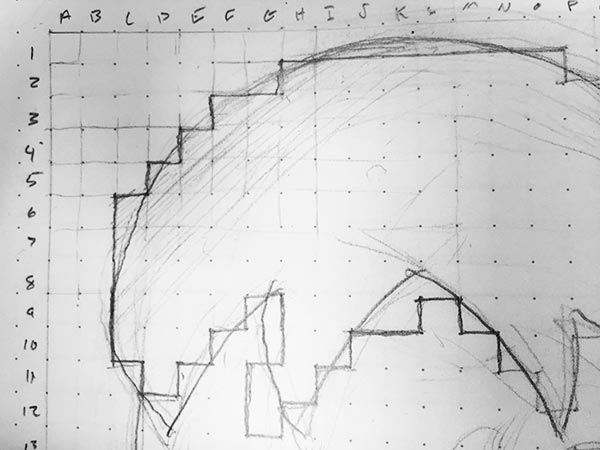 A B C D E F G H I J K L M N O P
1
2
3
4
5
6
7
8
9
10
11
12
13